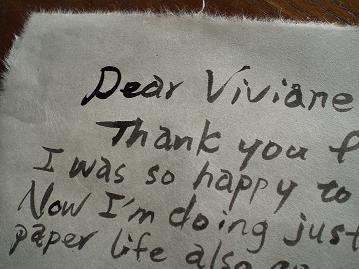 Dear Viviane
Thank you f
I was so happy to
Now I'm doing just
paper life also